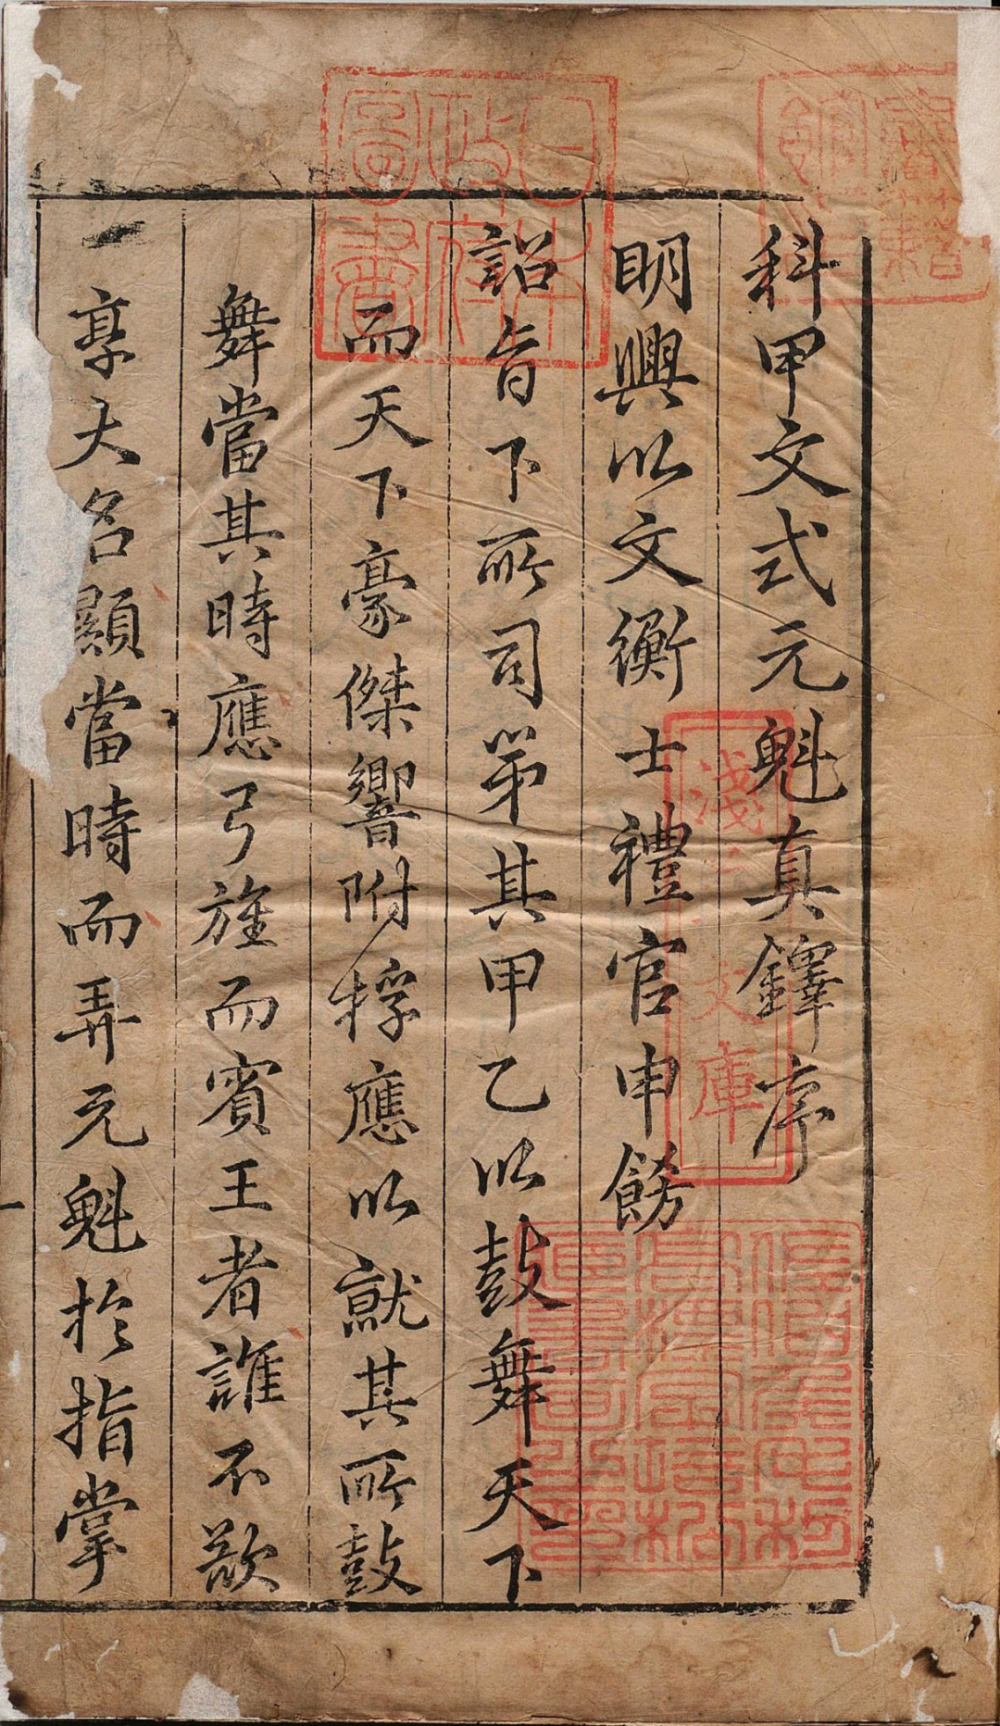 科甲文式元魁真鐸序
明興以文衡士禮官申餝
詔旨下所司第其甲乙以鼓舞天下
而天下豪傑響附桴應以就其所鼓
舞當其時應弓旌而賓王者誰不欲
享大名顯當時而弄元魁於指掌
日本
政府
圖書
淺草文庫